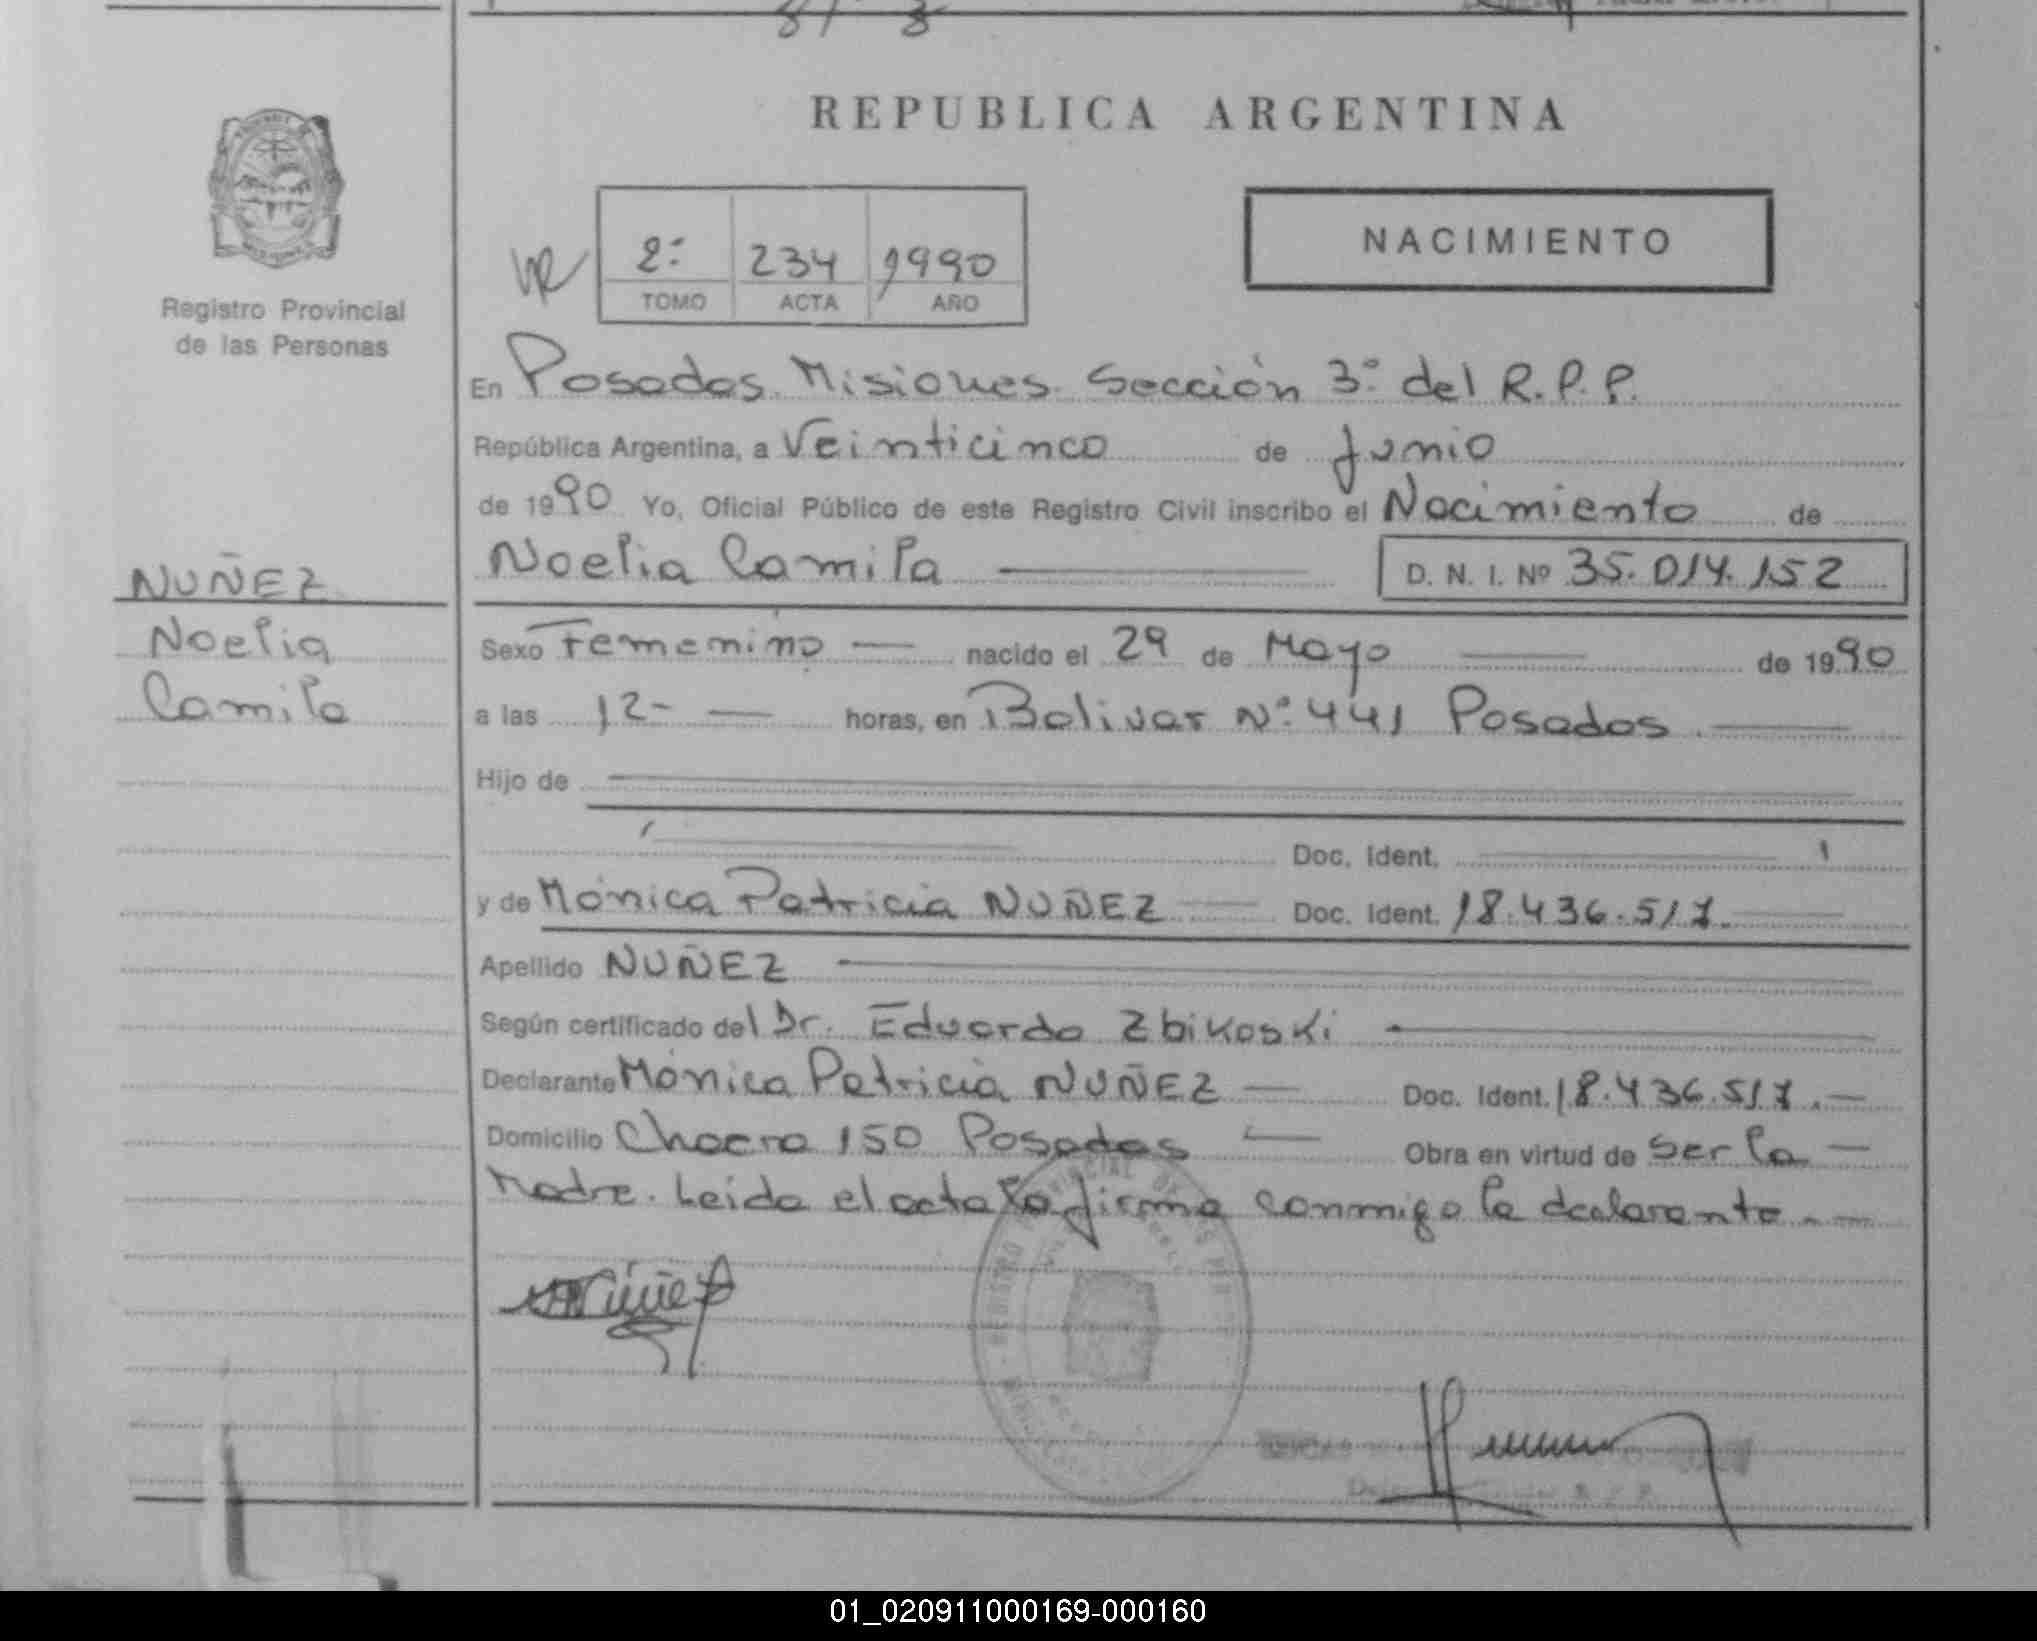 REPUBLICA ARGENTINA
NACIMIENTO
2º 234 1990
TOMO ACTA AÑO
Registro Provincial
de las Personas
En Posadas Misiones Sección 3º del R.P.P.
República Argentina, a Veinticinco de Junio
de 1990 Yo, Oficial Público de este Registro Civil inscribo el Nacimiento de
Noelia Camila D. N. I. Nº 35.014.152
NUÑEZ
Noelia
Camila
Sexo Femenino nacido el 29 de Mayo de 1990
a las 12- horas, en Bolivar Nº 441 Posadas
Hijo de
Doc. Ident.
y de Mónica Patricia NUÑEZ Doc. Ident. 18.436.517.
Apellido NUÑEZ
Según certificado del Dr. Eduardo Zbikoski
Declarante Mónica Patricia NUÑEZ Doc. Ident. 18.436.517.
Domicilio Chacra 150 Posadas Obra en virtud de ser la
Madre. Leída el acta la firma conmigo la declarante.
01_020911000169-000160